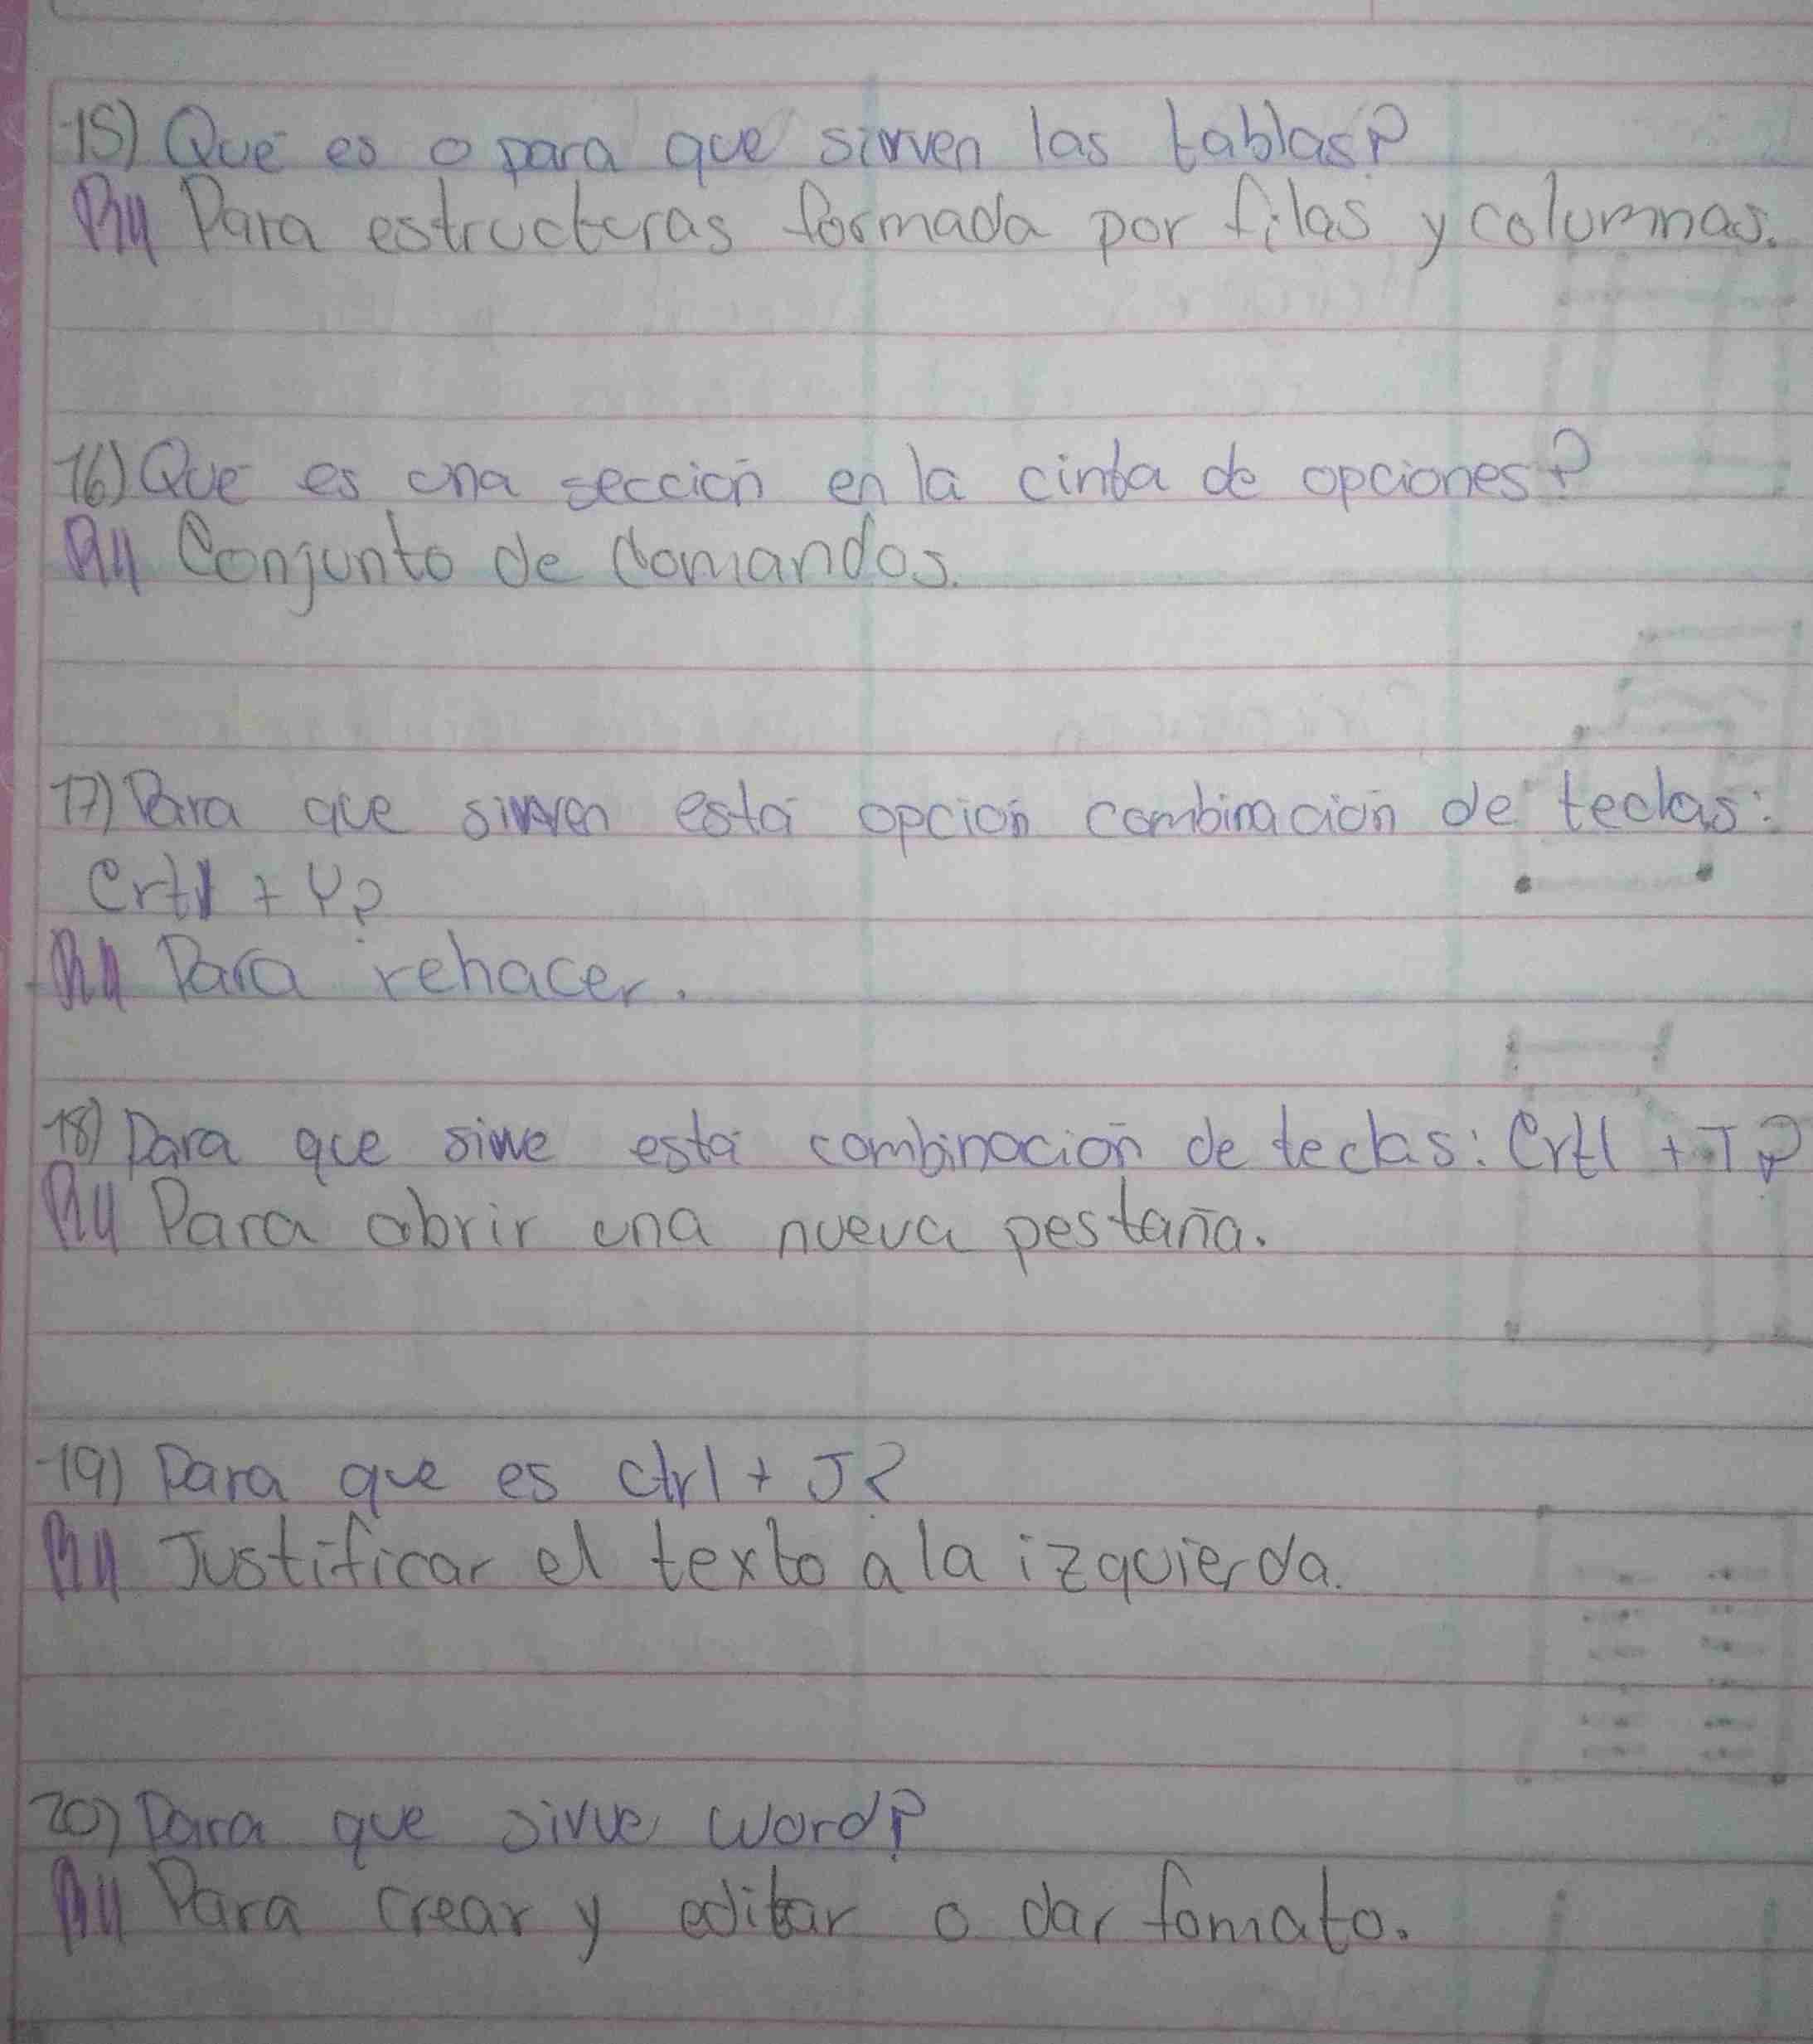 15) Que es o para que sirven las tablas?
R// Para estructuras formada por filas y columnas.
16) Que es una sección en la cinta de opciones?
R// Conjunto de comandos.
17) Para que sirven está opción combinación de teclas:
Crtl + Y?
R// Para rehacer.
18) Para que sirve está combinación de teclas: Crtl + T?
R// Para abrir una nueva pestaña.
19) Para que es ctrl + J?
R// Justificar el texto a la izquierda.
20) Para que sirve word?
R// Para crear y editar o dar fomato.